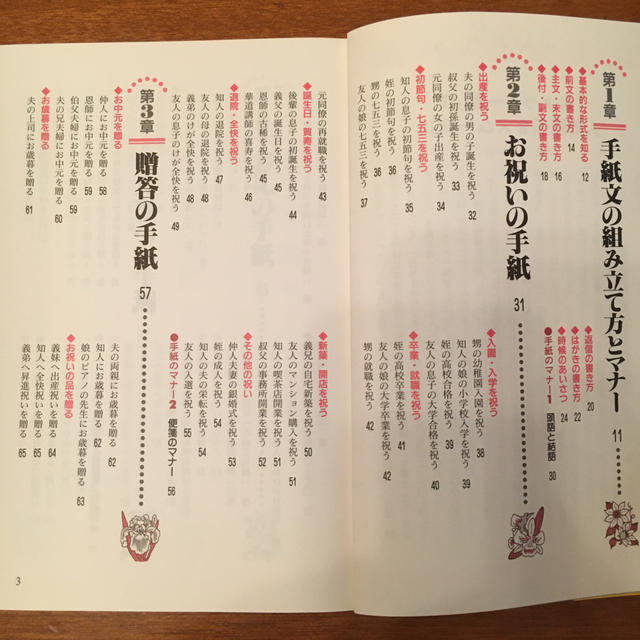 第1章 手紙文の組み立て方とマナー 11
◆基本的な形式を知る 12
◆前文の書き方 14
◆主文・末文の書き方 16
◆後付・副文の書き方 18
◆返信の書き方 20
◆はがきの書き方 22
◆時候のあいさつ 24
●手紙のマナー1 頭語と結語 30
第2章 お祝いの手紙 31
◆出産を祝う
夫の同僚の男の子誕生を祝う 32
叔父の初孫誕生を祝う 33
元同僚の女の子出産を祝う 34
◆初節句・七五三を祝う
知人の息子の初節句を祝う 35
姪の初節句を祝う 36
甥の七五三を祝う 36
友人の娘の七五三を祝う 37
◆入園・入学を祝う
甥の幼稚園入園を祝う 38
知人の娘の小学校入学を祝う 39
姪の高校合格を祝う 39
友人の息子の大学合格を祝う 40
◆卒業・就職を祝う
姪の高校卒業を祝う 41
友人の娘の大学卒業を祝う 42
甥の就職を祝う 42
元同僚の再就職を祝う 43
◆誕生日・賀寿を祝う
後輩の息子の初誕生を祝う 44
義父の誕生日を祝う 45
恩師の古稀を祝う 45
華道講師の喜寿を祝う 46
◆退院・全快を祝う
知人の退院を祝う 47
友人の母の退院を祝う 48
義弟のけが全快を祝う 48
友人の息子のけが全快を祝う 49
◆新築・開店を祝う
義兄の自宅新築を祝う 50
友人のマンション購入を祝う 51
知人の喫茶店開業を祝う 51
叔父の事務所開業を祝う 52
◆その他の祝い
仲人夫妻の銀婚式を祝う 53
姪の成人を祝う 54
知人の夫の栄転を祝う 54
友人の入選を祝う 55
●手紙のマナー2 便箋のマナー 56
第3章 贈答の手紙 57
◆お中元を贈る
仲人にお中元を贈る 58
恩師にお中元を贈る 59
伯父夫婦にお中元を贈る 59
夫の兄夫婦にお中元を贈る 60
◆お歳暮を贈る
夫の上司にお歳暮を贈る 61
夫の両親にお歳暮を贈る 62
知人にお歳暮を贈る 62
娘のピアノの先生にお歳暮を贈る 63
◆お祝いの品を贈る
義妹へ出産祝いを贈る 64
知人へ全快祝いを贈る 65
義弟へ昇進祝いを贈る 65
3